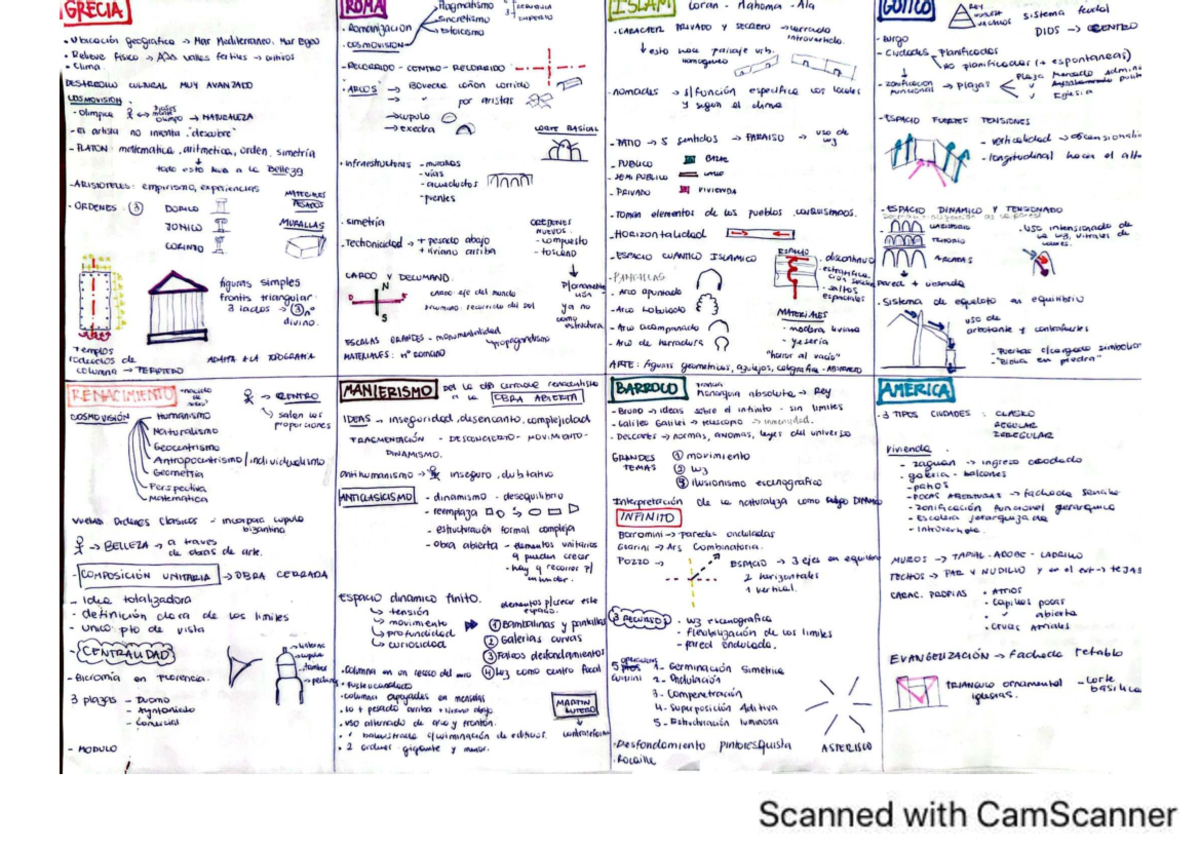 GRECIA
• Ubicación geográfica → Mar Mediterraneo, Mar Egeo
• Relieve físico → valles fertiles →
- Clima.
DESARROLLO CULTURAL MUY AVANZADO
COSMOVISION
- Olimpica → NATURALEZA
- El artista no inventa "descubre"
- PLATON: matematica, aritmetica, orden, simetría
todo esto lleva a la belleza
- ARISTOTELES: empirismo, experiencias
- ORDENES (3)
DORICO
JONICO
CORINTIO
MATERIALES PESADOS
MURALLAS
figuras simples
frontis triangular
3 lados → (3) nº divino.
Templos
rodeados de
columna → PERIPTERO
ADAPTA A LA TOPOGRAFIA
ROMA
Pragmatismo
Sincretismo
Estoicismo
- Romanización
COSMOVISION
- RECORRIDO - CENTRO - RECORRIDO
• ARCOS → Boveda cañon corrido
→ " por aristas
→ cupula
→ exedra
CORTE BASILICAL
• infraestructuras - murallas
- vias
- acueductos
- puentes
- simetría
- Techonicidad → + pesado abajo
+ liviano arriba
ORDENES NUEVOS:
- compuesto
- toscano
ya no como estructura
CARDO Y DECUMANO.
N
S
cardo: eje del mundo
decumano: recorrido del sol
ESCALAS GRANDES - monumentalidad
propagandismo
MATERIALES: Hº ROMANO
ISLAM
Coran - Mahoma - Ala
- CARACTER PRIVADO Y SECRETO → cerrado introvertido.
↓ esto hace paisaje urb. homogeneo
- nomades → s/función especifica los locales
y segun el clima
- PATIO → 5 sentidos → PARAISO → uso de luz
- PUBLICO
- SEMI PUBLICO
- PRIVADO VIVIENDA
- Toman elementos de los pueblos conquistados.
- HORIZONTALIDAD
- ESPACIO CUANTICO ISLAMICO
ESPACIO
- discontinuo
- saltos espaciales
PANTALLAS
- Arco apuntado
- Arco lobulado
- Arco acampanado
- Arco de herradura
MATERIALES
- madera liviana
- yeseria
"horror al vacio"
ARTE: figuras geometricas, azulejos, caligrafia - ABSTRACTO
GOTICO
REY
sistema feudal
DIOS → CENTRO
- Burgo
- Ciudades planificadas
no planificadas (+ espontaneas)
zonificación funcional → plazas
Plaza Mercado
" Iglesia
- ESPACIO FUERTES TENSIONES
- verticalidad → ascensionalid
- longitudinal hacia el alta
- ESPACIO DINAMICO Y TENSIONADO
- uso intensionado de la luz, vitrales de colores.
pared + vaciada
- Sistema de esqueleto en equilibrio
uso de arbotante y contrafuertes
- Puertas c/cargado simbolis
- "Biblia en piedra"
RENACIMIENTO
→ CENTRO
salen las proporciones
COSMOVISIÓN
Humanismo
Naturalismo
Geocentrismo
Antropocentrismo / individualismo
Geometria
Perspectiva
Matematica
vuelven Ordenes Clasicos - incorpora cupula bizantina
→ BELLEZA → a traves de obras de arte.
- COMPOSICIÓN UNITARIA → OBRA CERRADA
- Idea totalizadora
- definición clara de los limites
- Unico pto de vista
- CENTRALIDAD
linterna
cupula
tambor
pechinas
- Bicromia en Florencia.
3 plazas - Duomo
- Ayuntamiento
- Comercial
- MODULO
MANIERISMO
OBRA ABIERTA
IDEAS - inseguridad, desencanto, complejidad
FRAGMENTACIÓN - DESCONCIERTO - MOVIMIENTO - DINAMISMO.
Antihumanismo → inseguro, dubitativo
ANTICLASICISMO
- dinamismo - desequilibrio
- reemplaza
- estructuración formal compleja
- obra abierta - elementos unitarios
q pueden crecer
- hay q recorrer p/ entender.
ESPACIO dinamico finito.
→ tensión
→ movimiento
→ profundidad
→ curiosidad
elementos p/crear este espacio.
(1) Bambalinas y pantallas
(2) Galerias curvas
(3) Falsos desfondamientos
(4) Luz como centro focal
• Columna en un receso del muro
• columna apoyadas en mensulas
• Lo + pesado arriba + liviano abajo
• uso alternado de arco y fronton.
• balaustrada c/culminación de edificios.
• 2 ordenes: gigante y menor.
MARTIN LUTERO
contrareforma
BARROCO
Francia
Monarquia absoluta → Rey
- Bruno → ideas sobre el infinito - sin limites
- Galileo Galilei → telescopio → inmensidad.
- Descartes → normas, axiomas, leyes del universo
GRANDES TEMAS
(1) movimiento
(2) luz
(3) ilusionismo escenografico
Interpretación de la naturaleza como
INFINITO
Borromini → Paredes onduladas
Guarini → Ars Combinatoria.
Pozzo →
ESPACIO → 3 ejes en equilibrio
2 horizontales
1 vertical.
3 RECURSOS
- luz escenografica
- flexibilización de los limites
- pared ondulada.
5 operaciones Guarini
1- Germinación Simetrica
2- Ondulación
3- Compenetración
4- Superposición Aditiva
5- Estructuración luminosa
- Desfondamiento pintoresquista
ASTERISCO
• Rocaille
AMERICA
- 3 TIPOS CIUDADES: CLASICO
REGULAR
IRREGULAR
Vivienda
- zaguan → ingreso acodado
- galeria - balcones
- patios
- POCAS ABERTURAS → fachada sencilla
- zonificación funcional jerarquica
- Escalera jerarquizada
- introvertida.
MUROS → TAPIAL - ADOBE - LADRILLO
TECHOS → PAR Y NUDILLO y en el ext → TEJAS
CARAC. PROPIAS
• ATRIOS
• Capillas posas
• " abierta
• Cruces Atriales
EVANGELIZACIÓN → Fachada retablo
TRIANGULO ornamental iglesias.
- corte basilica
Scanned with CamScanner